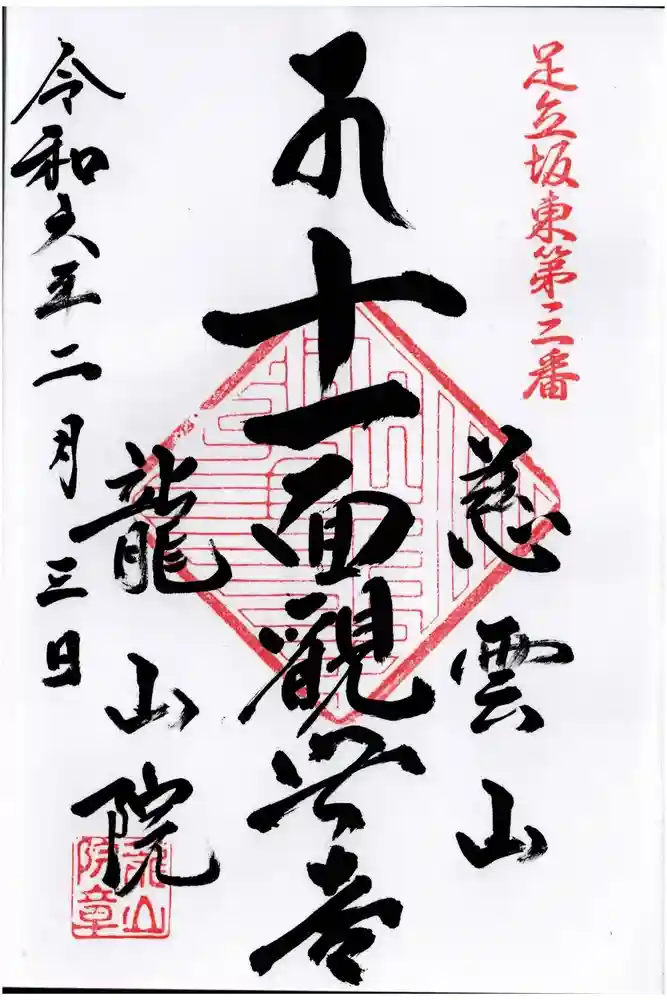 足立坂東第三番
慈雲山
十一面觀世音
龍山院
令和六年二月三日
龍山
院章